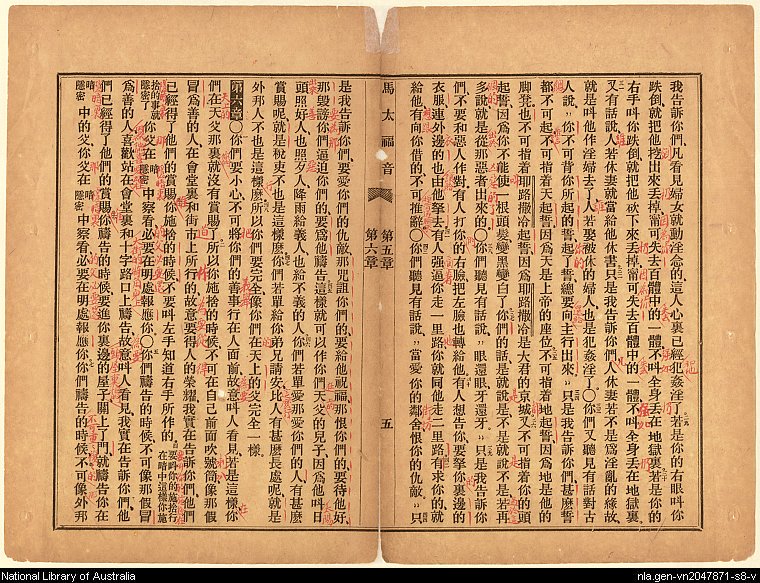 我告訴你們凡看見婦女就動淫念的這人心裏已經犯姦淫了若是你的右眼叫你
跌倒就把他挖出來丢掉甯可失去百體中的一體不叫全身丢在地獄裏若是你的
右手叫你跌倒就把他砍下來丢掉甯可失去百體中的一體不叫全身丢在地獄裏
又有話說人若休妻就當給他休書只是我告訴你們人休妻若不是爲淫亂的緣故
就是叫他作淫婦去了人若娶被休的婦人也是犯姦淫了○你們又聽見有話對古
人說〝你不可背你所起的誓起了誓總要向主行出來〞只是我告訴你們甚麽誓
都不可起不可指着天起誓因爲天是上帝的座位不可指着地起誓因爲地是他的
脚凳也不可指着耶路撒冷起誓因爲耶路撒冷是大君的京城又不可指着你的頭
起誓因爲你不能使一根頭髮變黑變白了你們的話是就說是不是就說不是若再
多說就是從那惡者出來的○你們聽見有話說〝眼還眼牙還牙〞只是我告訴你
們不要和惡人作對有人打你的右臉把左臉也轉給他有人想告你要拏你裏邊的
衣服連外邊的也由他拏去有人强逼你走一里路你就同他走二里路有求你的就
給他有向你借的不可推辭○你們聽見有話說〝當愛你的鄰舍恨你的仇敵〞只
馬太福音 第五章 第六章 五
是我告訴你們要愛你們的仇敵那咒詛你們的要給他祝福那恨你們的要待他好
那毀謗你們逼迫你們的要爲他禱告這樣就可以作你們天父的兒子因爲他叫日
頭照好人也照歹人降雨給義人也給不義的人你們若單愛那愛你們的人有甚麽
賞賜呢就是稅吏不也是這樣麽你們若單給你弟兄請安比人有甚麽長處呢就是
外邦人不也是這樣麽所以你們要完全像你們在天上的父完全一樣
第六章○你們要小心不可將你們的善事行在人面前故意叫人看見若是這樣你
們在天父那裏就沒有賞賜了所以你施捨的時候不可在自己前面吹號筒像那假
冒爲善的人在會堂裏和街市上所行的故意要得人的榮耀我實在告訴你們他們
已經得了他們的賞賜你施捨的時候不要叫左手知道右手所作的要叫你的施捨行在暗中這樣你施
捨的事就隱密了你父在暗隱密中察看必要在明處報應你○你們禱告的時候不可像那假冒
爲善的人喜歡站在會堂裏和十字路口上禱告故意叫人看見我實在告訴你們他
們已經得了他們的賞賜你禱告的時候要進你裏邊的屋子關上了門就禱告你在
暗隱密中的父你父在暗隱密中察看必要在明處報應你你們禱告的時候不可像外邦
National Library of Australia
nla.gen-vn2047871-s8-v